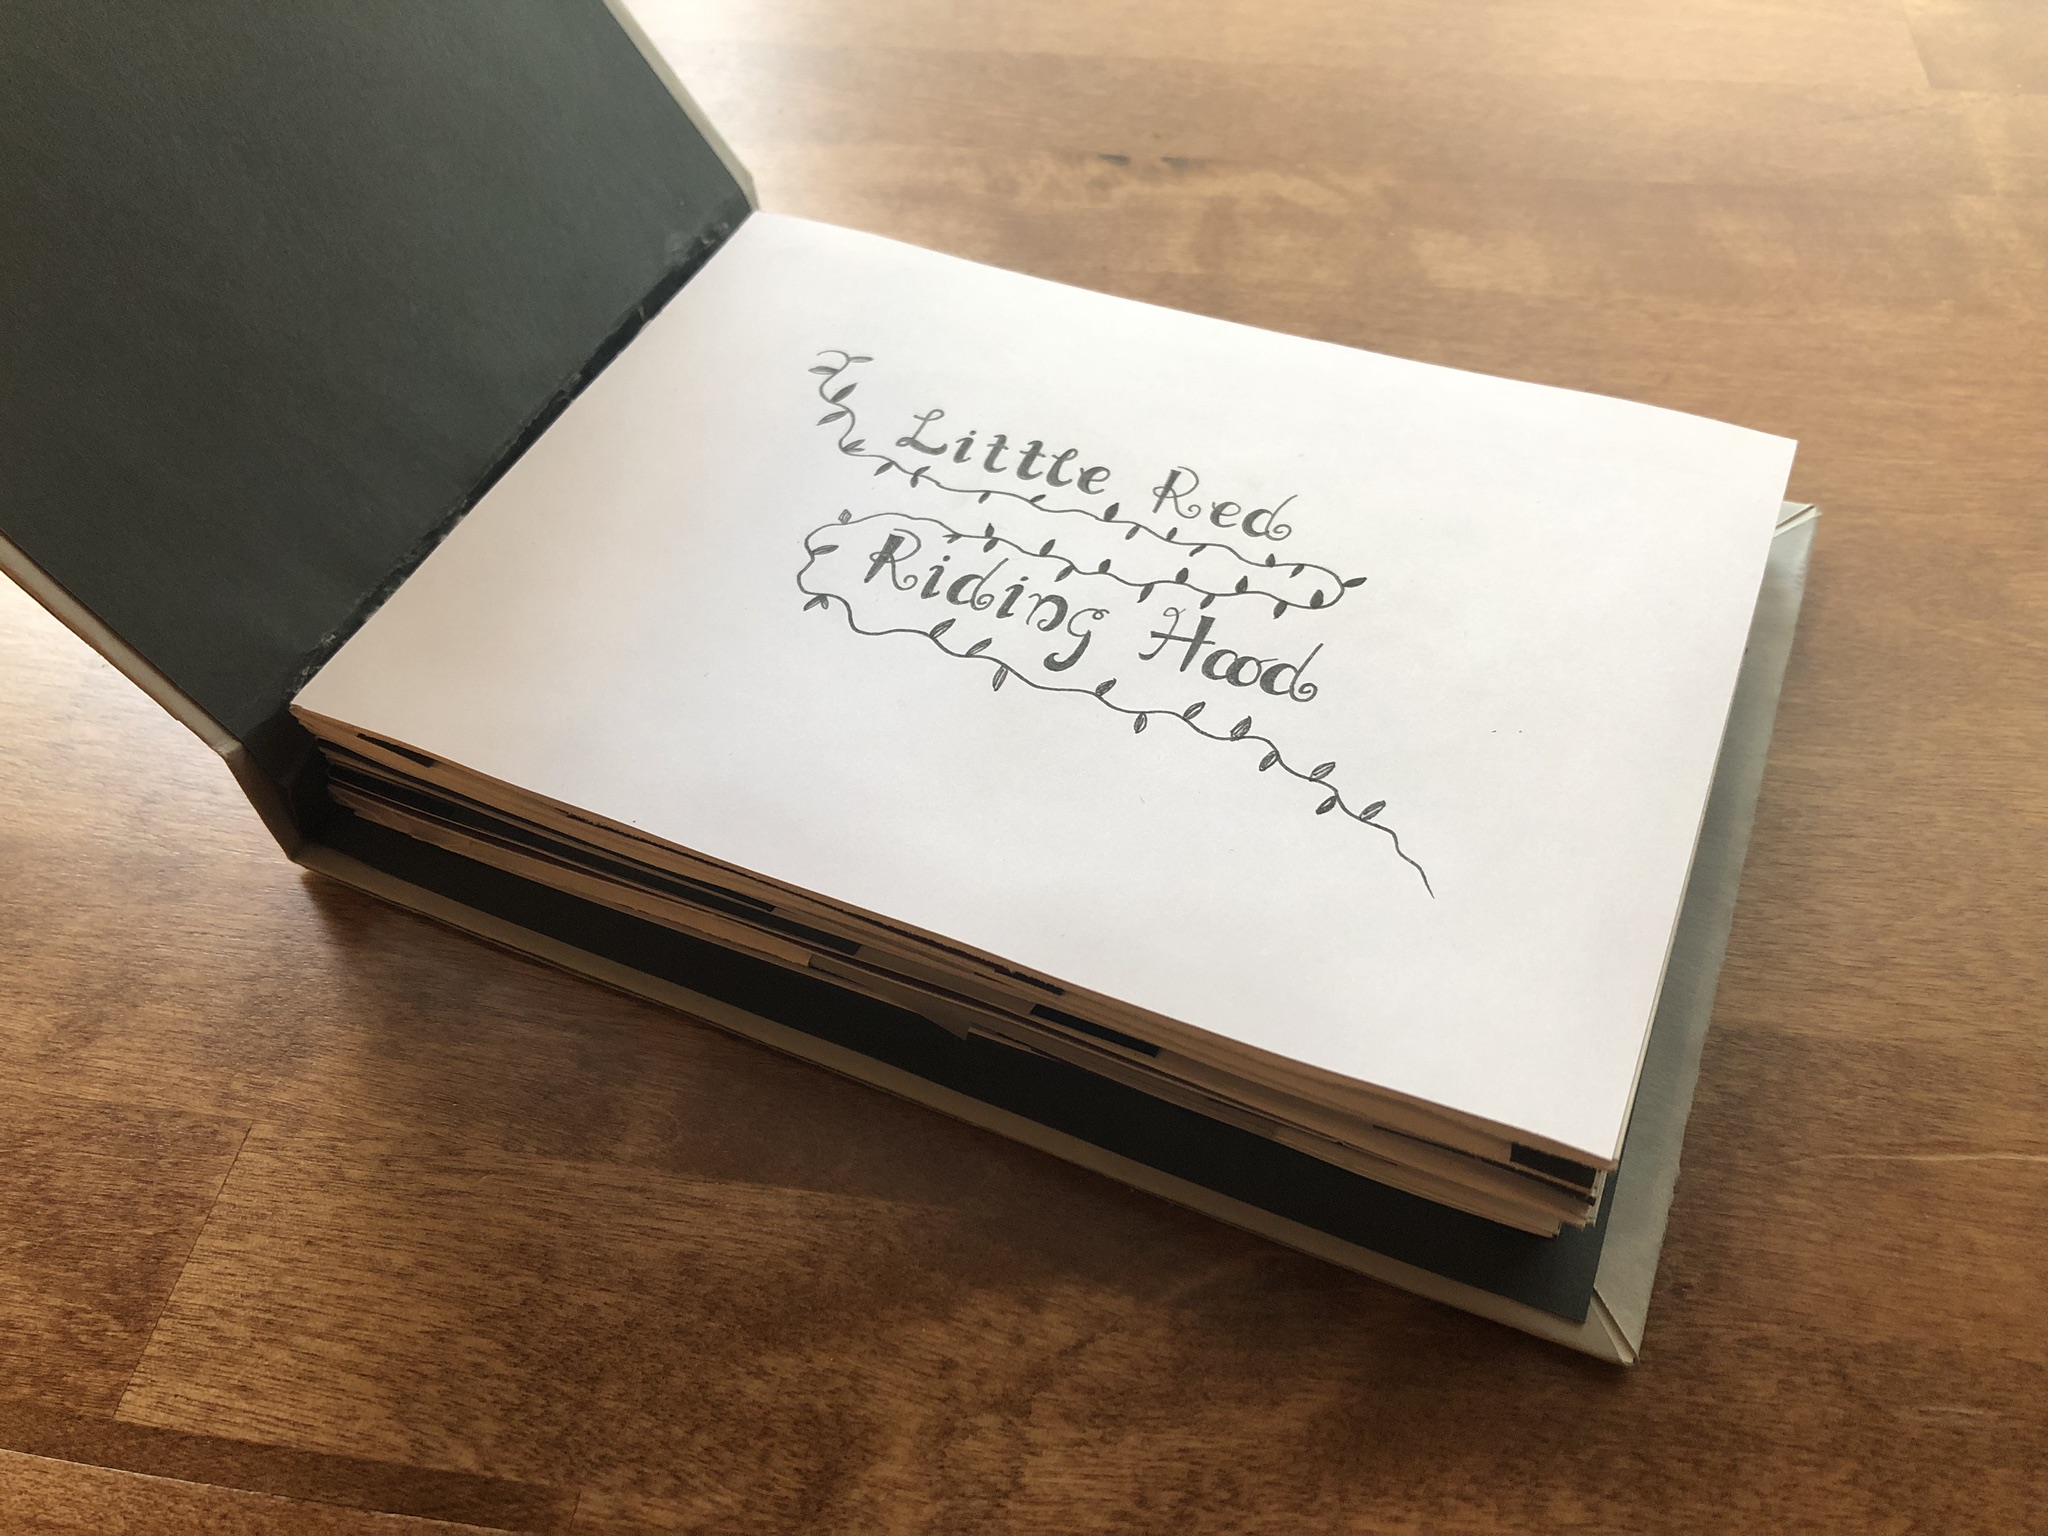 Little Red
Riding Hood